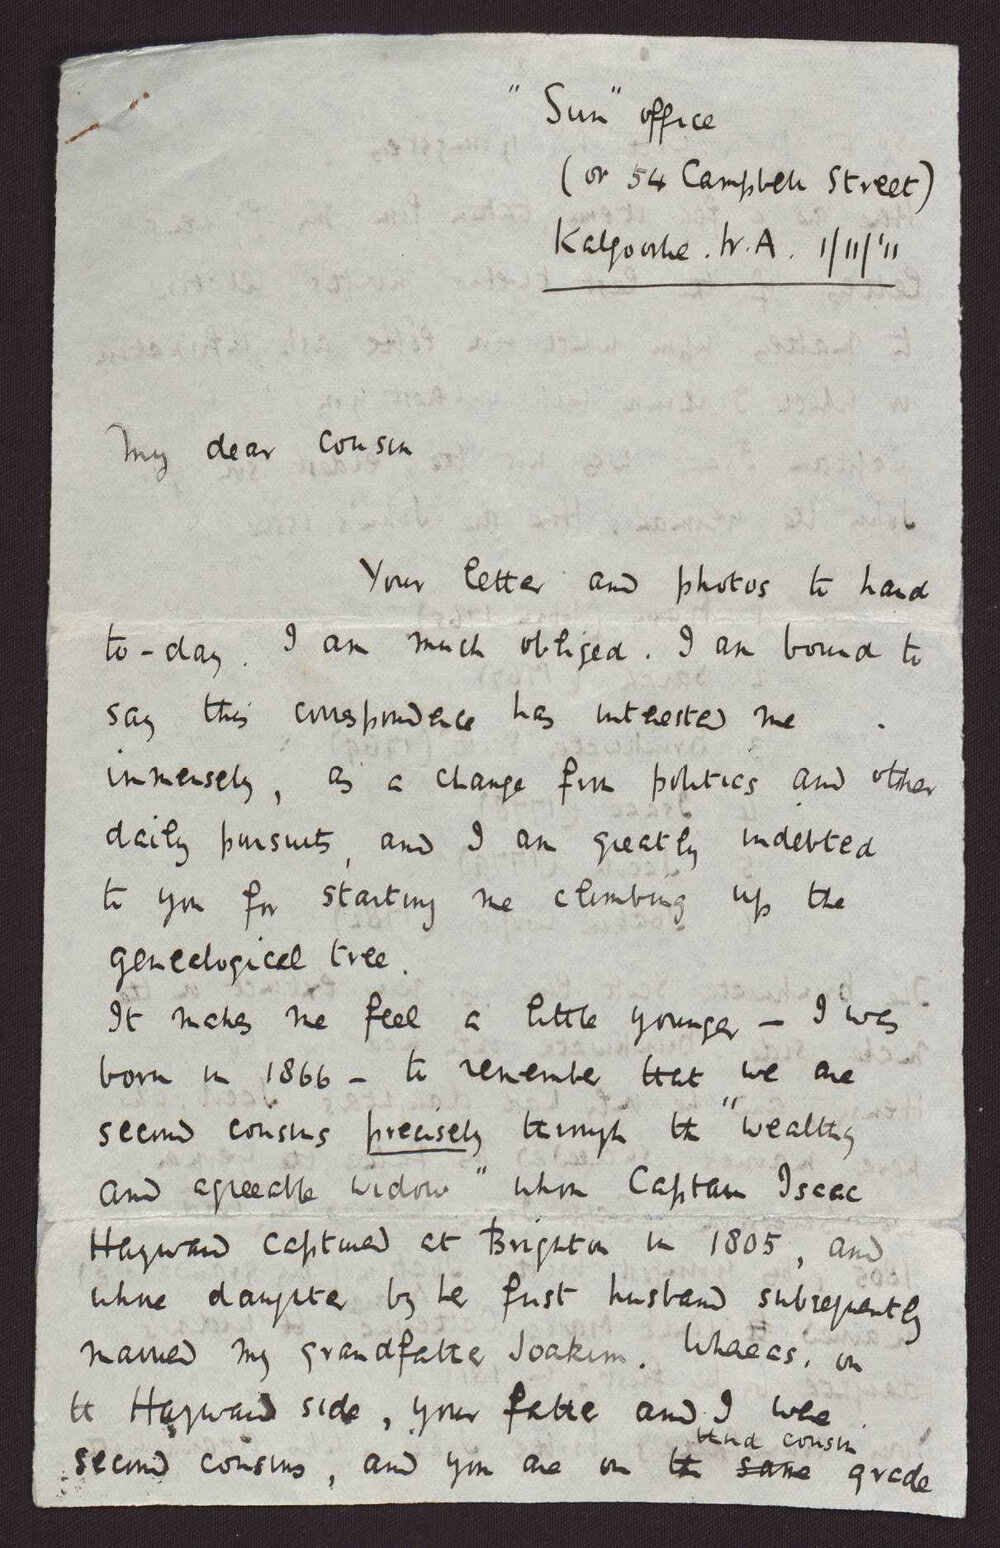 "Sun" office
(or 54 Campbell Street)
Kalgoorlie. W.A. 1/11/'11
My dear cousin
Your letter and photos to hand
to-day. I am much obliged. I am bound to
say this correspondence has interested me
immensely, as a change from politics and other
daily pursuits, and I am greatly indebted
to you for starting me climbing up the
genealogical tree.
It makes me feel a little younger – I was
born in 1866 – to remember that we are
second cousins precisely through the "wealthy
and agreeable widow" whom Captain Isaac
Hayward captured at Brighton in 1805, and
whose daughter by her first husband subsequently
married my grandfather Joakim. Whereas, on
the Hayward side, your father and I were
third cousin
second cousins, and you are on the same grade